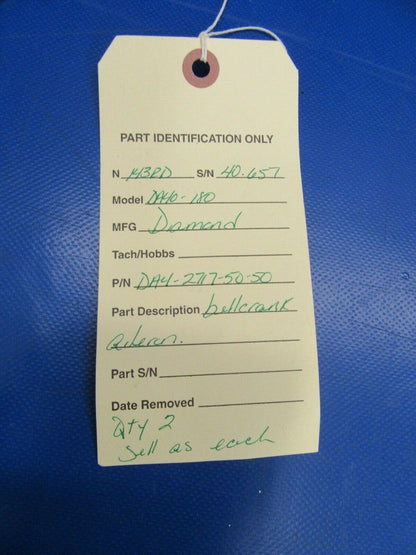 PART IDENTIFICATION ONLY
N 143PD S/N 40.657
Model DA40-180
MFG Diamond
Tach/Hobbs
P/N DA4-2717-50-50
Part Description bellcrank
aileron.
Part S/N
Date Removed
Qty 2
Sell as each